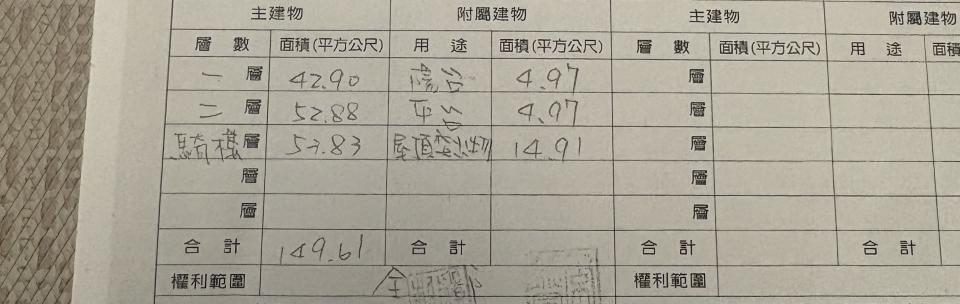 主建物 附屬建物 主建物 附屬建物
層數 面積(平方公尺) 用途 面積(平方公尺) 層數 面積(平方公尺) 用途 面積
一層 42.90 陽台 4.97 層
二層 52.88 平台 4.97 層
騎樓層 53.83 屋頂突出物 14.91 層
層 層
層 層
合計 149.61 合計 合計 合計
權利範圍 全 權利範圍